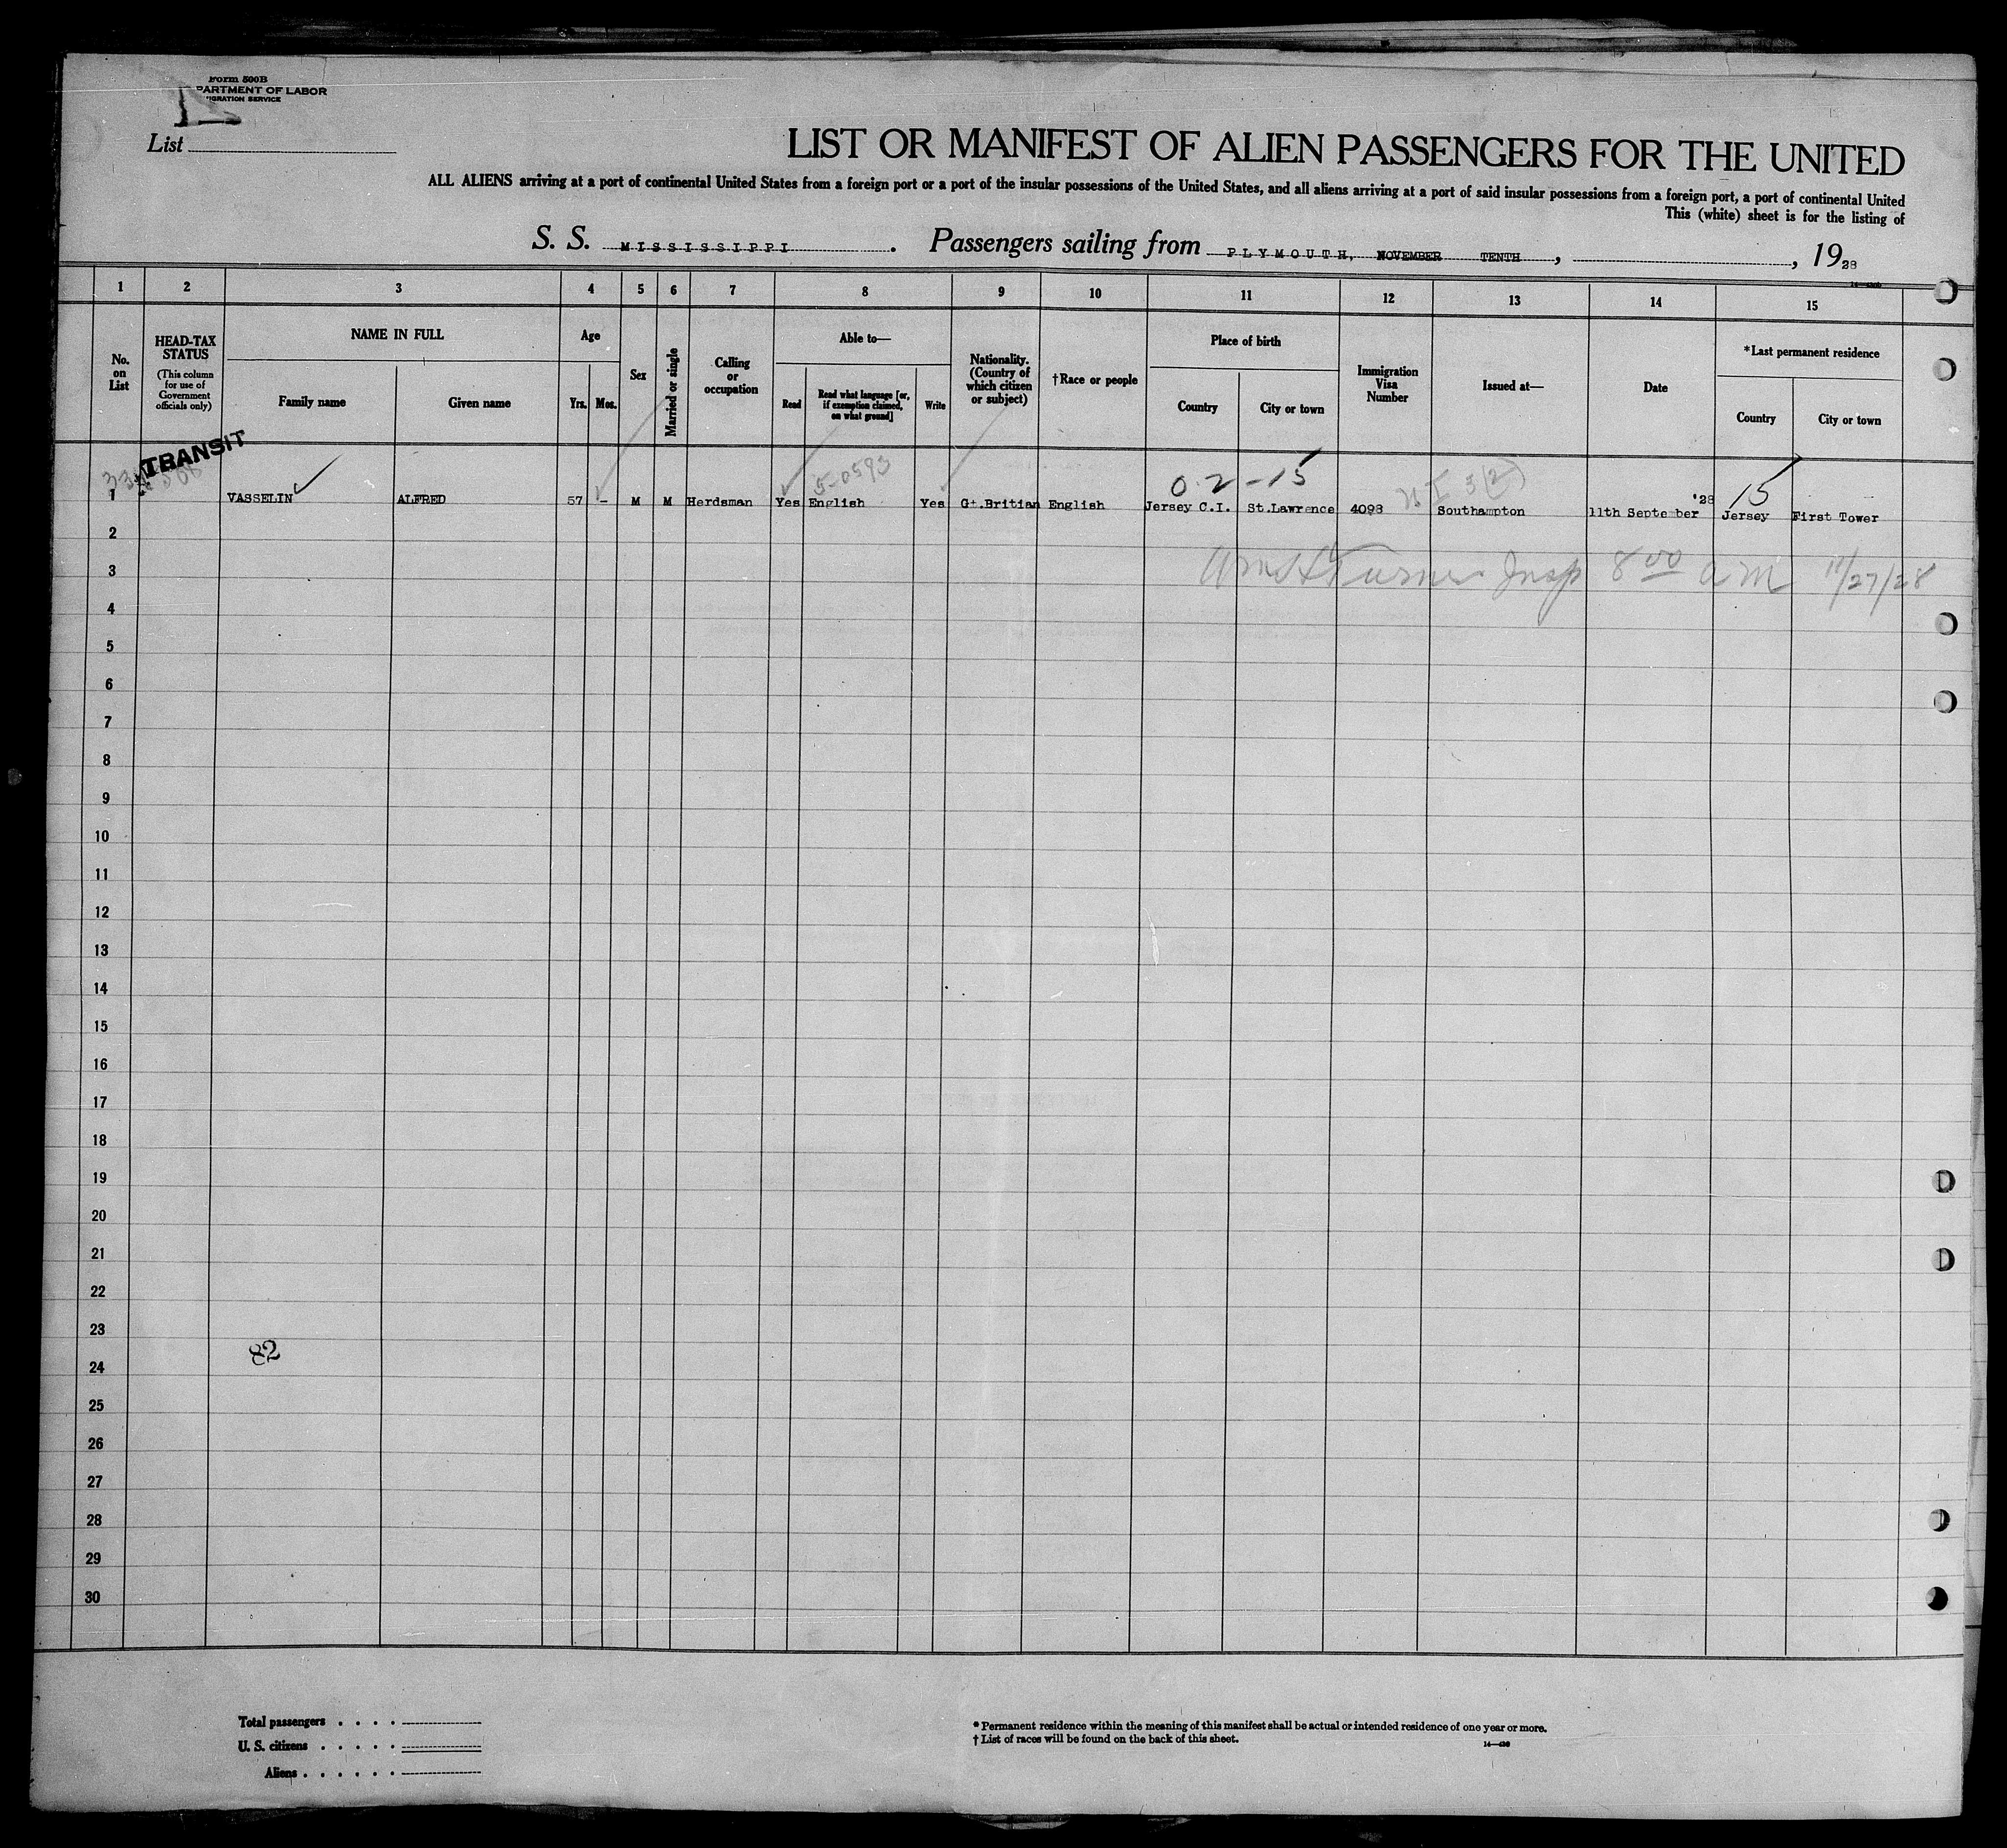 Form 500B
PARTMENT OF LABOR
IGRATION SERVICE
List
LIST OR MANIFEST OF ALIEN PASSENGERS FOR THE UNITED
ALL ALIENS arriving at a port of continental United States from a foreign port or a port of the insular possessions of the United States, and all aliens arriving at a port of said insular possessions from a foreign port, a port of continental United
This (white) sheet is for the listing of
S. S. MISSISSIPPI. Passengers sailing from PLYMOUTH, NOVEMBER TENTH, , 1928
1 2 3 4 5 6 7 8 9 10 11 12 13 14 15
No. on List
HEAD-TAX STATUS
(This column for use of Government officials only)
NAME IN FULL
Family name
Given name
Age
Yrs.
Mos.
Sex
Married or single
Calling or occupation
Able to—
Read
Read what language [or, if exemption claimed, on what ground]
Write
Nationality. (Country of which citizen or subject)
†Race or people
Place of birth
Country
City or town
Immigration Visa Number
Issued at—
Date
*Last permanent residence
Country
City or town
TRANSIT
5-0593
0.2-15
15
1 VASSELIN ALFRED 57 - M M Herdsman Yes English Yes Gt.Britian English Jersey C.I. St.Lawrence 4098 Southampton 11th September '28 Jersey First Tower
2
Wm H Turner Insp 8 00 a M 11/27/28
3
4
5
6
7
8
9
10
11
12
13
14
15
16
17
18
19
20
21
22
23
82
24
25
26
27
28
29
30
Total passengers . . . .
U. S. citizens . . . . .
Aliens . . . . . .
* Permanent residence within the meaning of this manifest shall be actual or intended residence of one year or more.
† List of races will be found on the back of this sheet.